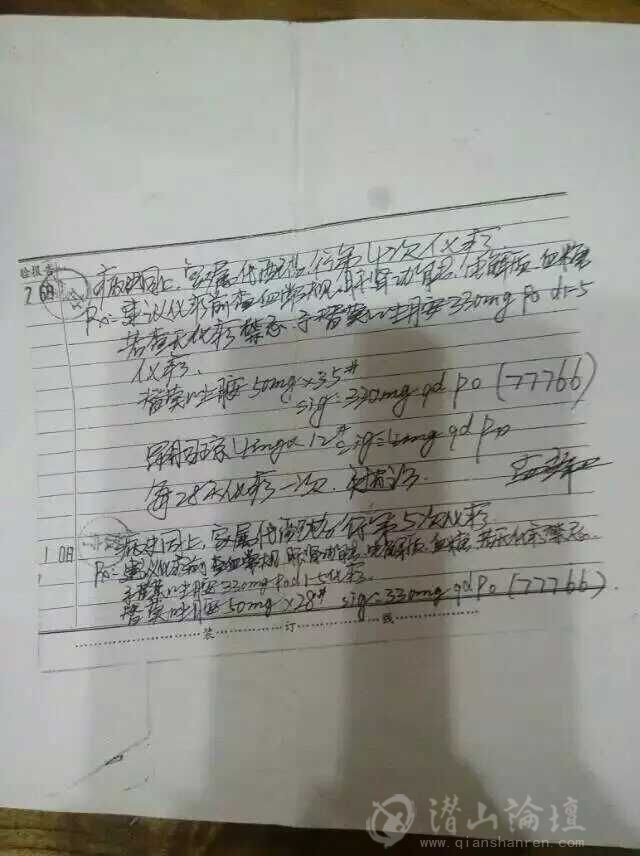 检报告
病史同上,家属代诉拟行第4次化疗
Rx: 建议化疗前查血常规、肝肾功能、电解质、血糖
若查无化疗禁忌,予替莫唑胺330mg po d1-5
化疗.
替莫唑胺 50mg×35#
sig: 330mg qd po (77766)
4mg×12# sig: qd po
每28天化疗一次.
10日
病史同上,家属代诉 行第5次化疗
Rx: 建议化疗前查血常规、肝肾功能、电解质、血糖,若无化疗禁忌.
予替莫唑胺330mg po d1-5化疗.
替莫唑胺50mg×28# sig: 330mg qd po (77766)
装 订 线
潜山論壇
www.qianshanren.com